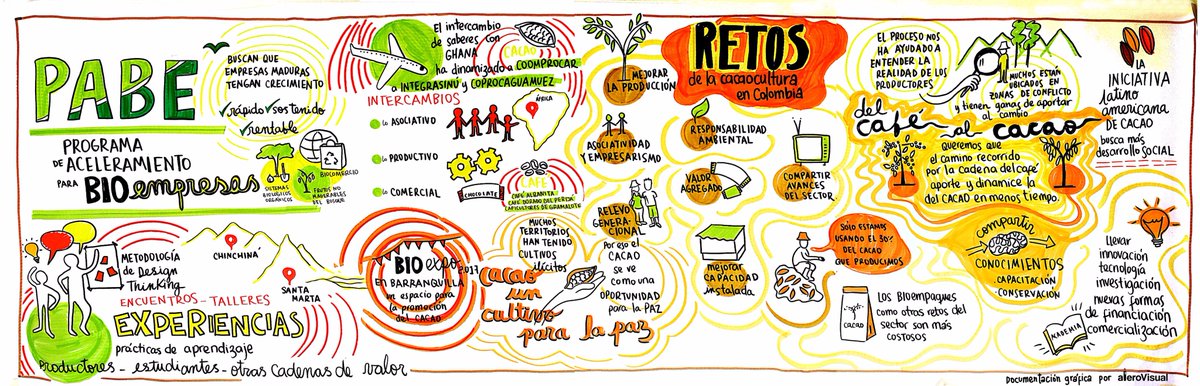 PABE
PROGRAMA
DE ACELERAMIENTO
PARA BIOempresas
BUSCAN QUE
EMPRESAS MADURAS
TENGAN CRECIMIENTO
rápido
sostenido
rentable
BIOCOMERCIO
SISTEMAS
BIOLÓGICOS
ORGÁNICOS
FRUTOS NO
MADERABLES
DEL BOSQUE
METODOLOGÍA
de Design
Thinking
CHINCHINÁ
SANTA
MARTA
ENCUENTROS - TALLERES
EXPERIENCIAS
prácticas de aprendizaje
Productores - estudiantes - otras cadenas de valor
El intercambio
de saberes con
GHANA
ha dinamizado a COOMPROCAR
a INTEGRASINÚ y COPROCAGUAMUEZ
CACAO
INTERCAMBIOS
Lo ASOCIATIVO
Lo PRODUCTIVO
Lo COMERCIAL
ÁFRICA
CHOCOLATE
CAFÉ
CAFÉ ALBANITA
APICULTORES DE GRAMALOTE
BIOexpo
2017
EN BARRANQUILLA
un espacio para
la promoción
del CACAO
MUCHOS
TERRITORIOS
HAN TENIDO
CULTIVOS
ilícitos
cacao
un
cultivo
para la paz
RETOS
de la cacaocultura
en Colombia
MEJORAR
LA PRODUCCIÓN
ASOCIATIVIDAD
Y EMPRESARISMO
RELEVO
GENERA-
CIONAL
Por eso el
CACAO
SE VE
COMO UNA
OPORTUNIDAD
para la PAZ
RESPONSABILIDAD
AMBIENTAL
VALOR
AGREGADO
COMPARTIR
AVANCES
DEL SECTOR
mejorar
CAPACIDAD
instalada
SÓLO ESTAMOS
USANDO EL 30%
DEL CACAO
QUE PRODUCIMOS
CACAO
LOS Bioempaques
como otros retos del
sector son más
costosos
EL PROCESO NOS
HA AYUDADO A
ENTENDER LA
REALIDAD DE LOS
PRODUCTORES
MUCHOS ESTÁN
UBICADOS EN
ZONAS DE CONFLICTO
y tienen ganas de aportar
al cambio
del
café al cacao
QUEREMOS QUE
el camino recorrido
por la cadena del café
aporte y dinamice la
del CACAO en menos tiempo.
compartir
CONOCIMIENTOS
- CAPACITACIÓN
- CONSERVACIÓN
LA
INICIATIVA
latino
americana
DE CACAO
busca más
desarrollo SOCIAL
llevar
innovación
tecnología
investigación
nuevas formas
de financiación
comercialización
ACADEMIA
Documentación gráfica por aleroVisual